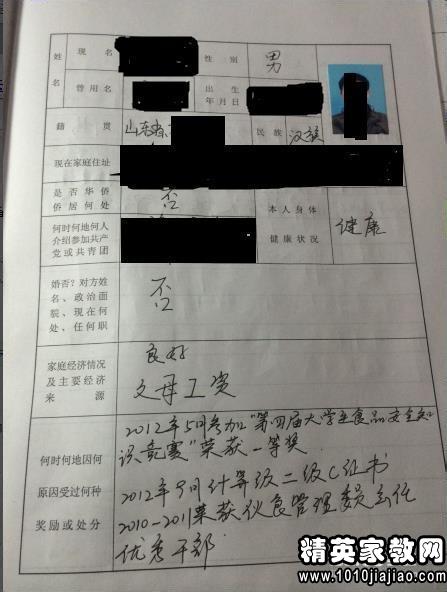 姓名 现名 性别 男
曾用名 出生年月日
籍贯 山东省 民族 汉族
现在家庭住址
是否华侨 否 本人身体
侨居何处 健康状况 健康
何时何地何人
介绍参加共产
党或共青团
婚否？对方姓 否
名、政治面
貌、现在何
处、任何职
家庭经济情况 良好
及主要经济 父母工资
来源
何时何地因何
原因受过何种
奖励或处分
2012年5月参加“第四届大学生食品安全知
识竞赛”荣获一等奖
2012年9月计算机二级C证书
2010-2011荣获伙食管理委员会任
优秀干部
精英家教网
www.1010jiajiao.com